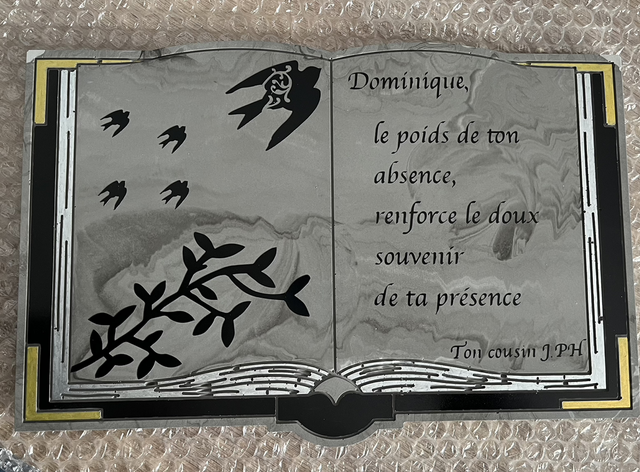 Dominique,
le poids de ton
absence,
renforce le doux
souvenir
de ta présence
Ton cousin J.PH